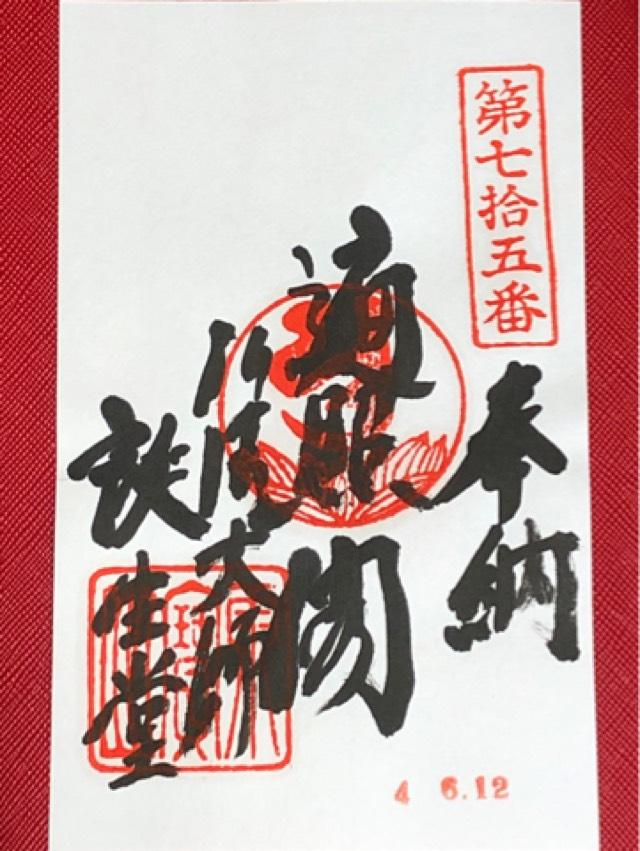 第七拾五番
奉納
遍照閣
弘法大師
誕生堂
4 6.12